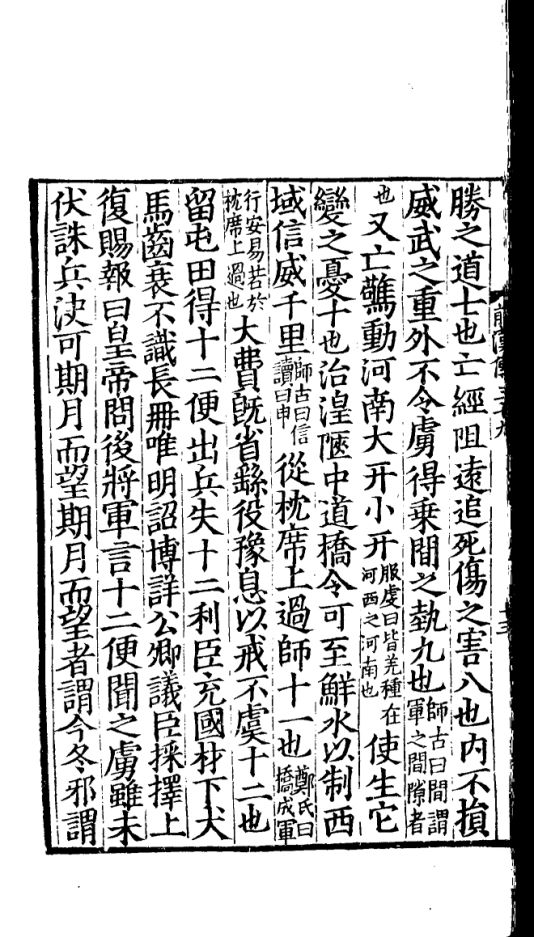 勝之道七也亡經阻遠追死傷之害八也内不損
威武之重外不令虜得乗間之埶九也師古曰間謂軍之間隙者
也又亡驚動河南大开小开服虔曰皆羌種在河西之河南也使生它
變之憂十也治湟陿中道橋令可至鮮水以制西
域信威千里師古曰信讀曰申從枕席上過師十一也鄭氏曰橋成軍
行安易若於枕席上過也大費既省繇役豫息以戒不虞十二也
留屯田得十二便出兵失十二利臣充國材下犬
馬齒衰不識長冊唯明詔博詳公卿議臣採擇上
復賜報曰皇帝問後將軍言十二便聞之虜雖未
伏誅兵決可期月而望期月而望者謂今冬邪謂